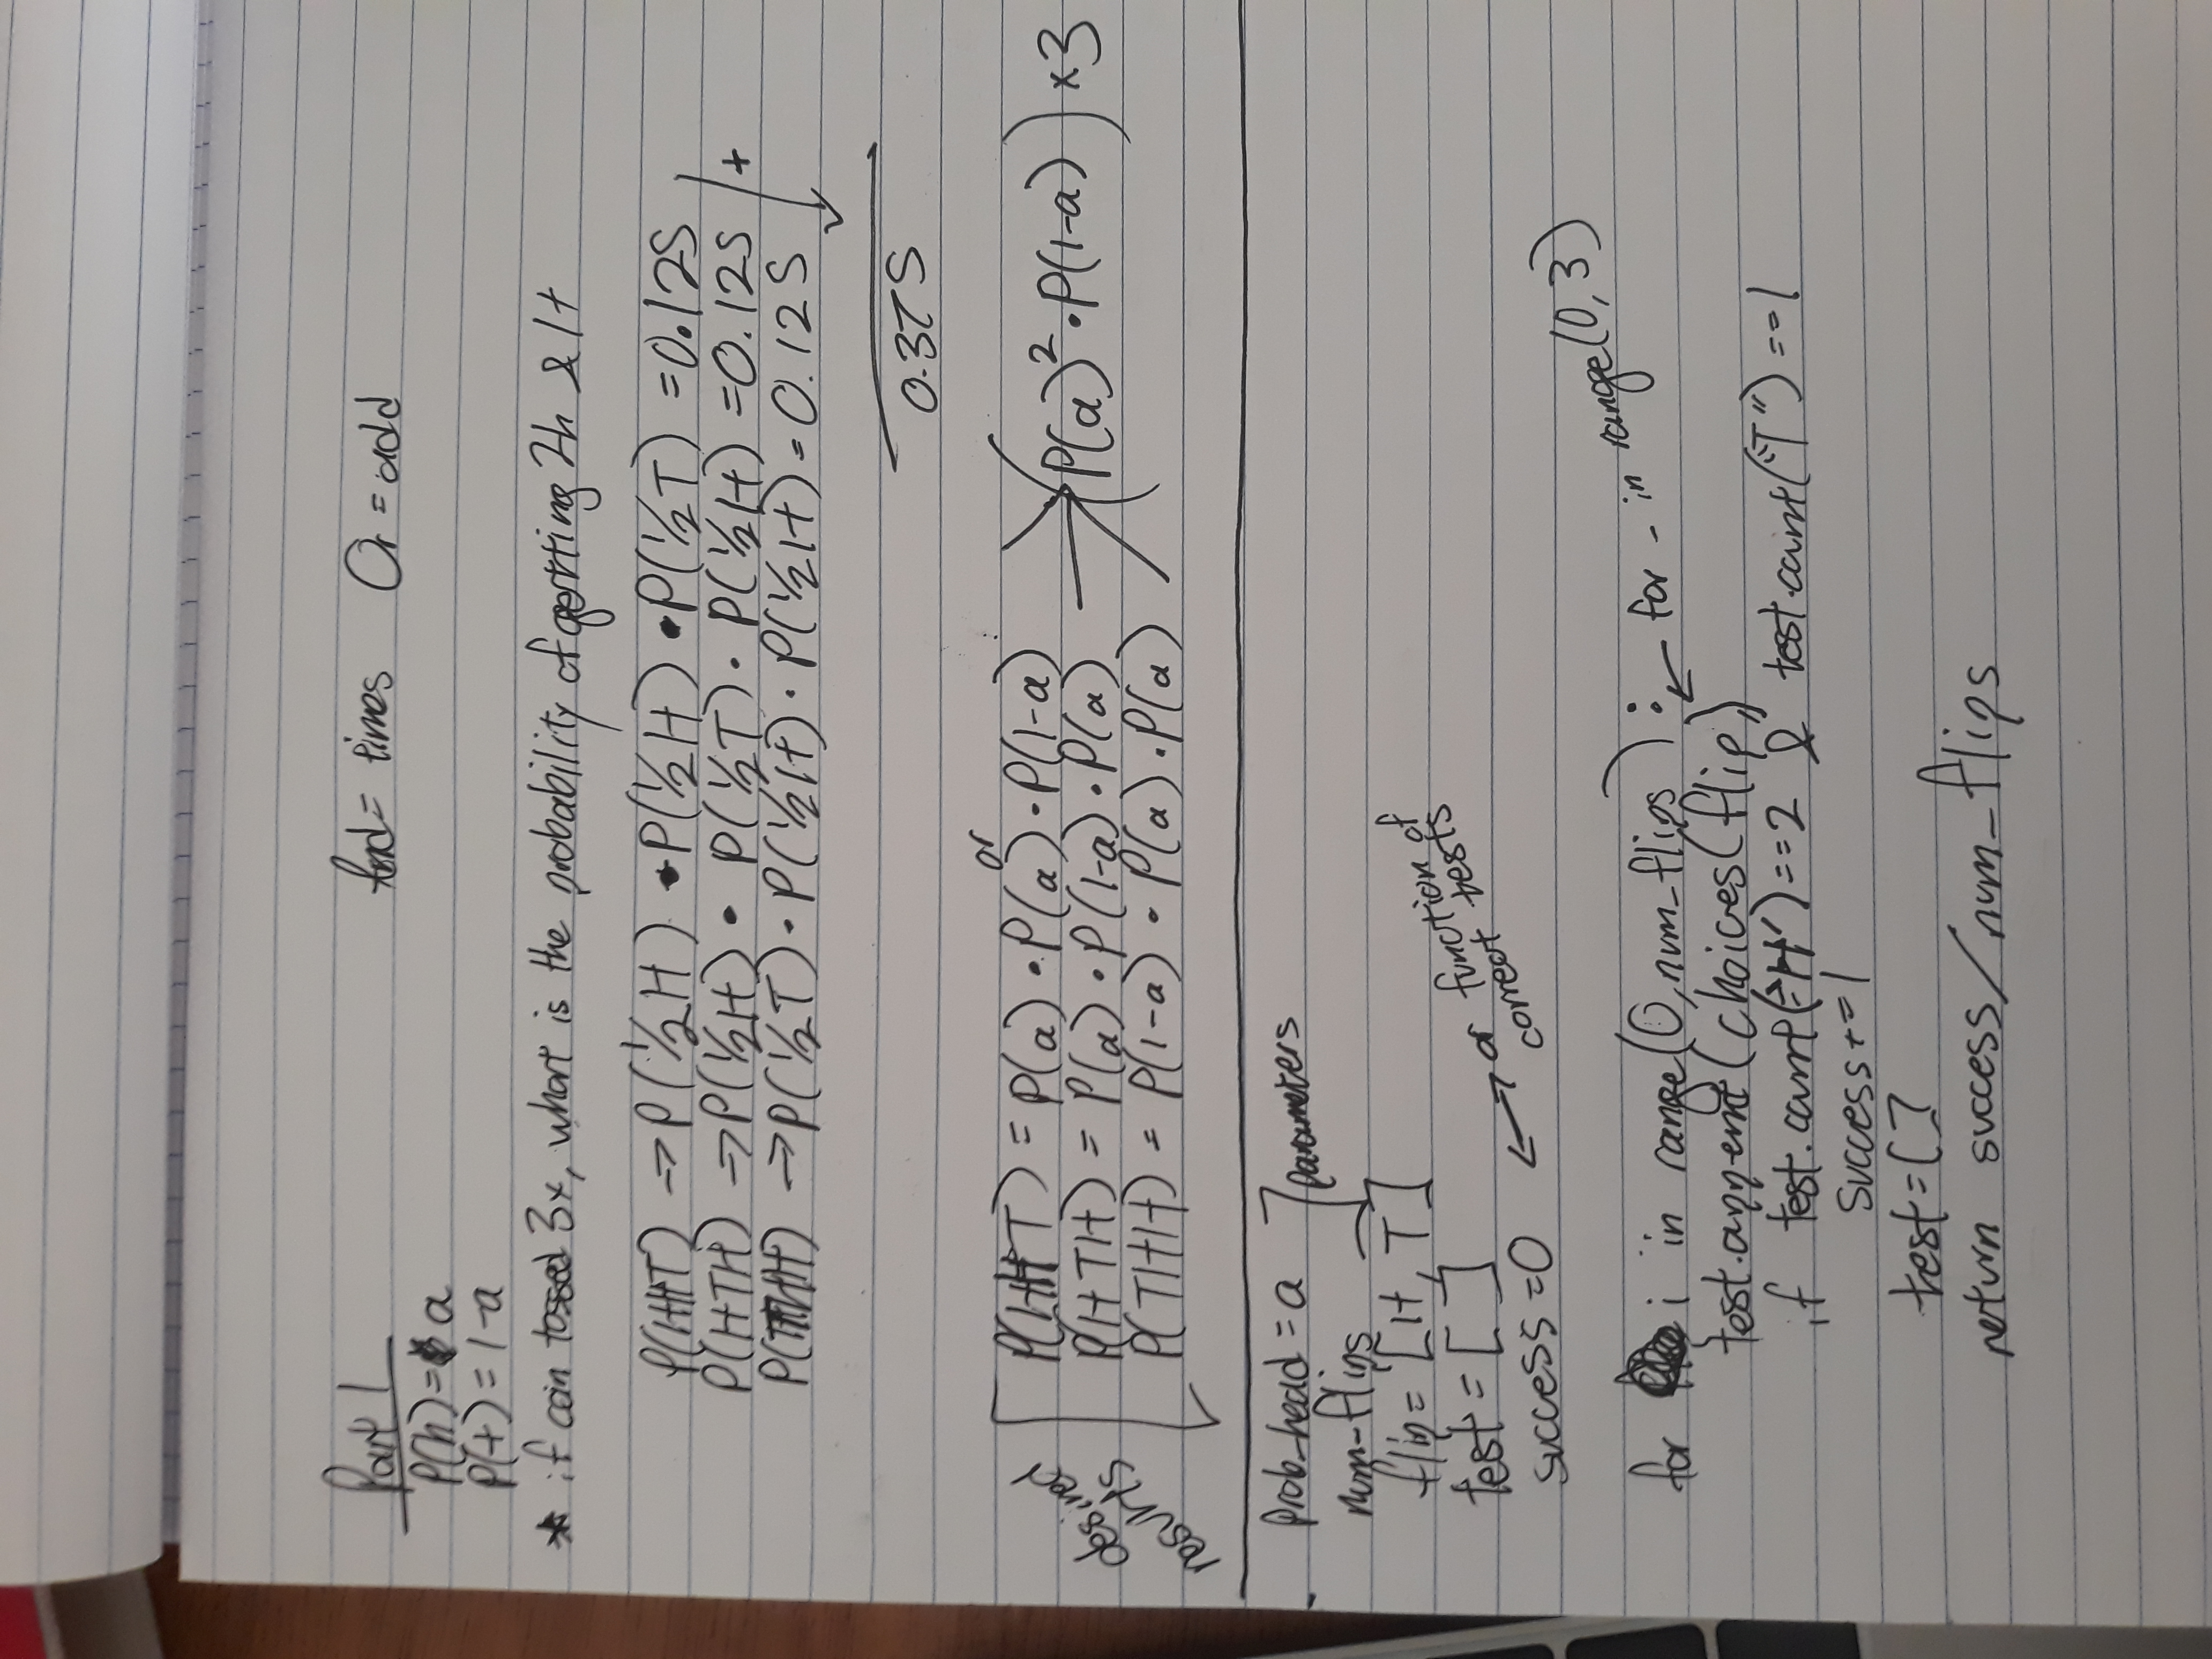 Part 1
And = times Or = add
P(h) = a
P(t) = 1-a
* if coin tossed 3x, what is the probability of getting 2h & 1t
P(HHT) → P(1/2H) • P(1/2H) • P(1/2T) = 0.125
P(HTH) → P(1/2H) • P(1/2T) • P(1/2H) = 0.125
P(THH) → P(1/2T) • P(1/2H) • P(1/2H) = 0.125
+
0.375
or
desired results
P(HHT) = P(a) • P(a) • P(1-a)
P(HTH) = P(a) • P(1-a) • P(a)
P(THH) = P(1-a) • P(a) • P(a)
(P(a)² • P(1-a)) × 3
Prob_head = a
parameters
num_flips
flip = [H, T]
test = [ ]
success = 0
or function of
correct tests
for i in range(0, num_flips): ← for _ in range(0, 3)
test.append(choices(flip,)
if test.count("H") == 2 & test.count("T") == 1
success += 1
test = [ ]
return success/num_flips